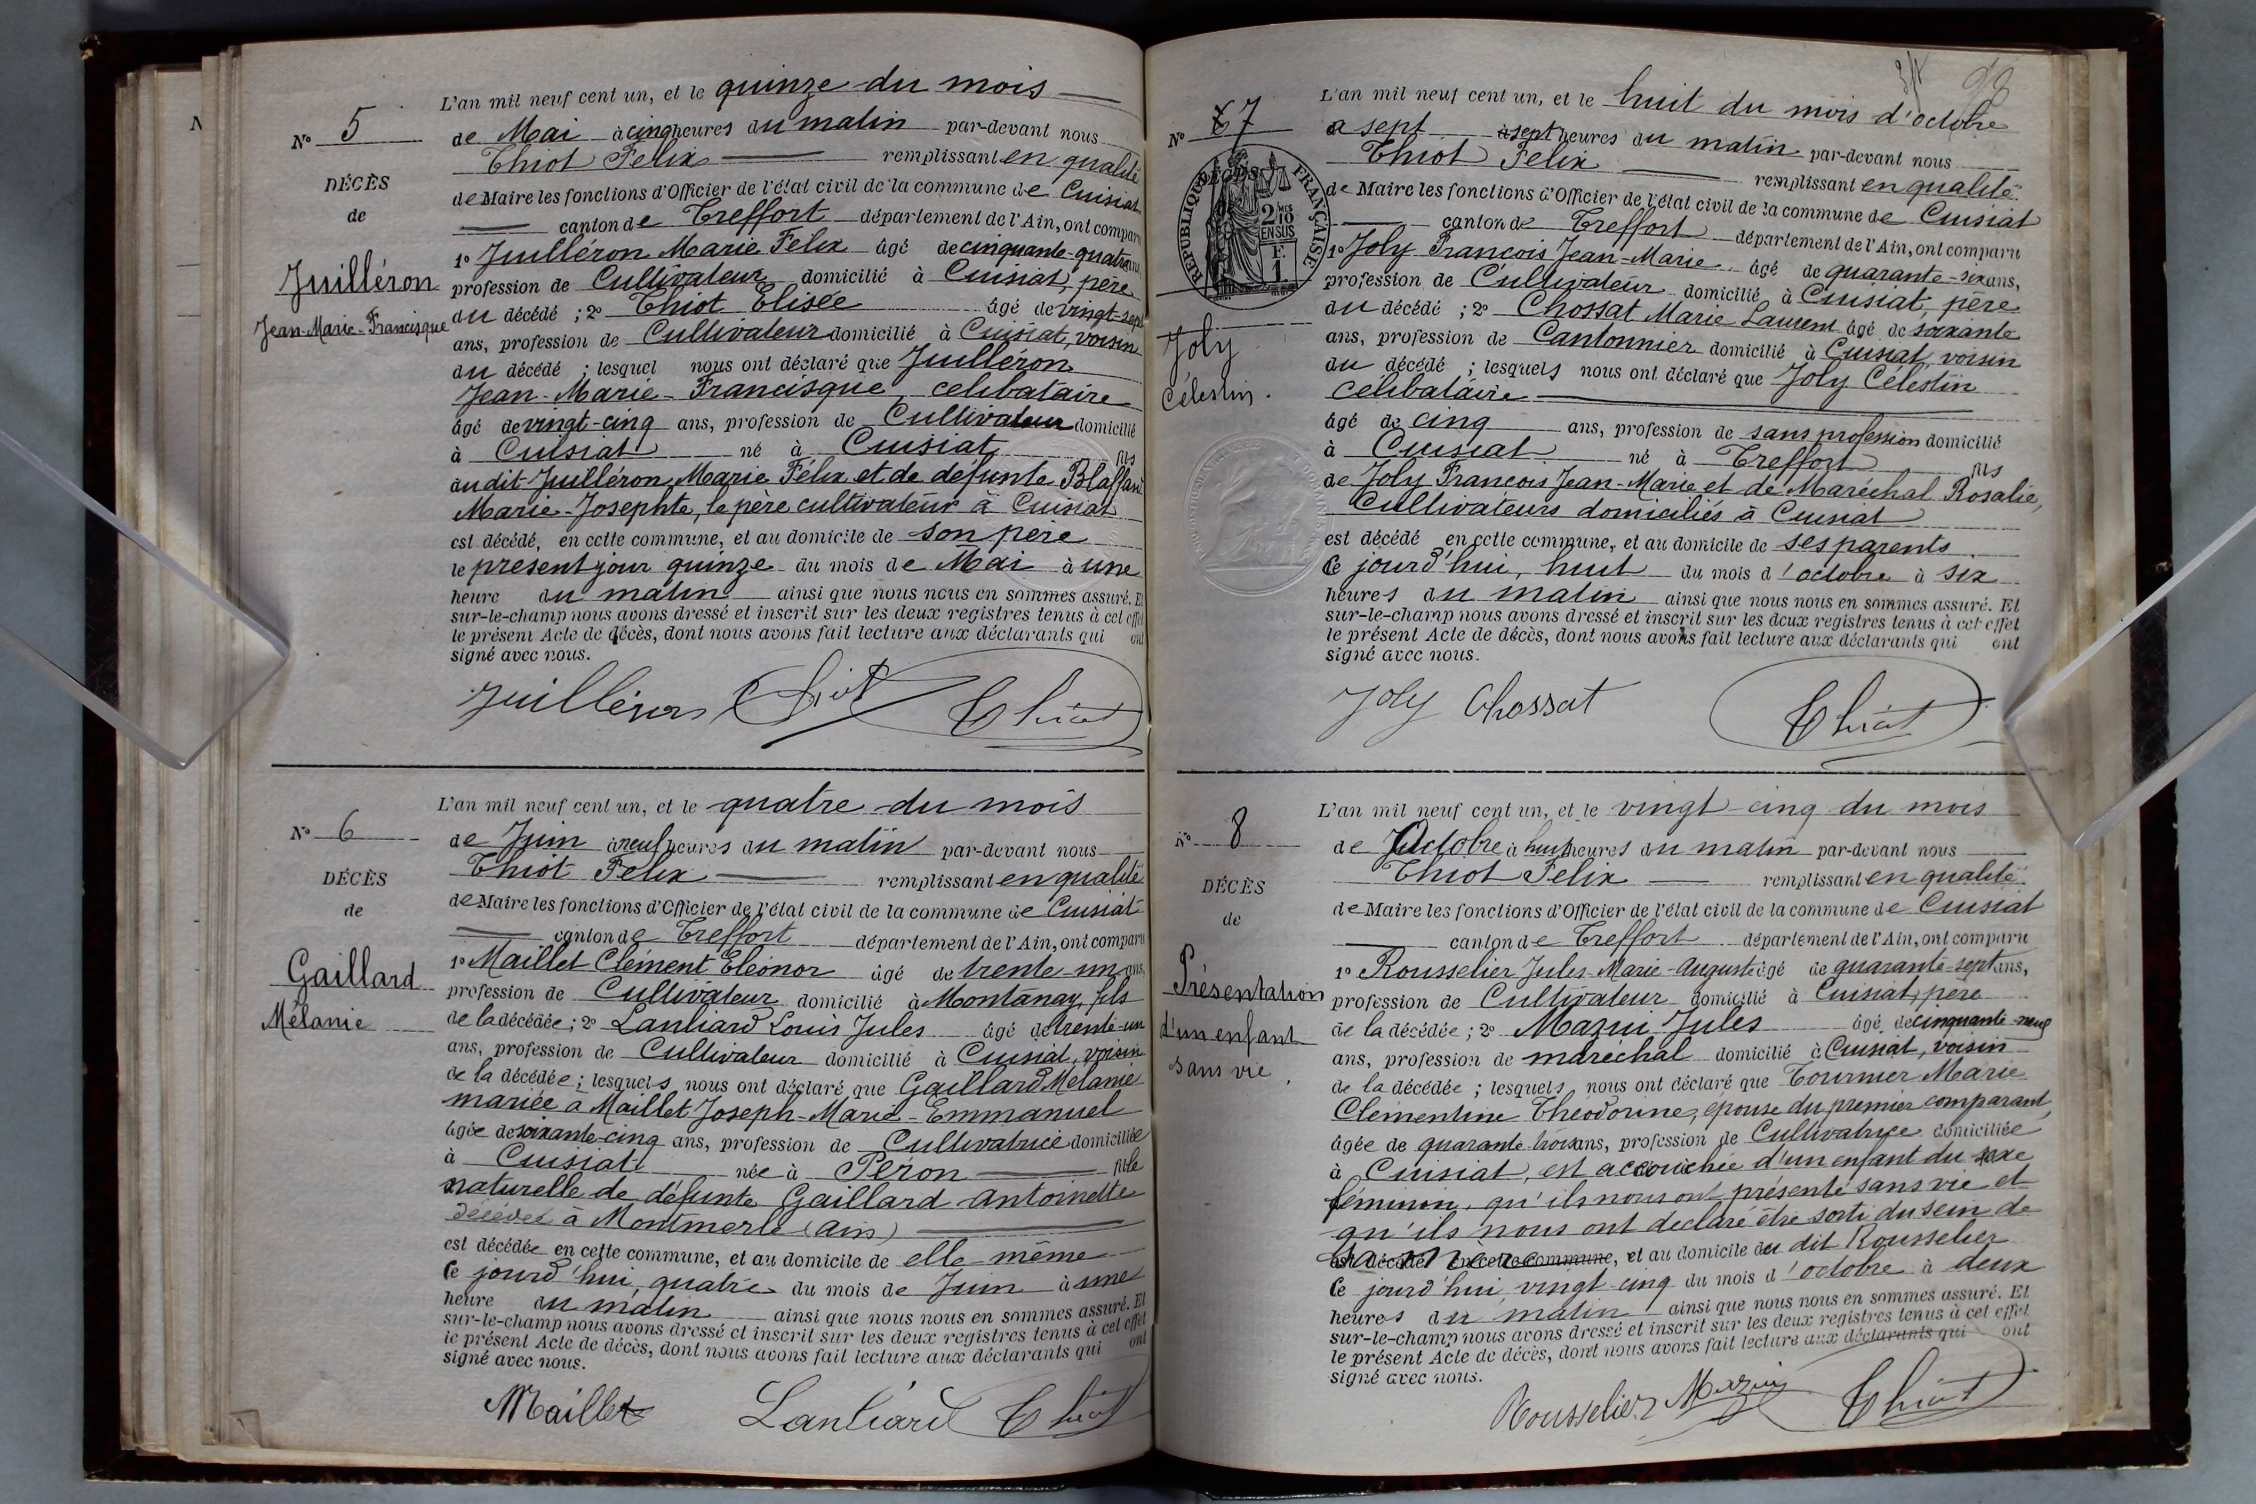 N
L'an mil neuf cent un, et le quinze du mois
N° 5
de Mai à cinq heures du matin par-devant nous
Thiot Felix remplissant en qualité
DÉCÈS
de Maire les fonctions d'Officier de l'état civil de la commune de Cuisiat
de
canton de Treffort département de l'Ain, ont comparu
1° Juilléron Marie Félix âgé de cinquante-quatre ans,
Juilléron
profession de Cultivateur domicilié à Cuisiat, père
Jean-Marie-Francisque
du décédé ; 2° Thiot Elisée âgé de vingt-sept
ans, profession de Cultivateur domicilié à Cuisiat, voisin
du décédé ; lesquel nous ont déclaré que Juilléron
Jean-Marie-Francisque, célibataire
âgé de vingt-cinq ans, profession de Cultivateur domicilié
à Cuisiat né à Cuisiat fils
du dit Juilléron Marie Félix et de défunte Blaffard
Marie-Josephte, le père cultivateur à Cuisiat
est décédé, en cette commune, et au domicile de son père
le présent jour quinze du mois de Mai à une
heure du matin ainsi que nous nous en sommes assuré. Et
sur-le-champ nous avons dressé et inscrit sur les deux registres tenus à cet effet
le présent Acte de décès, dont nous avons fait lecture aux déclarants qui ont
signé avec nous.
Juilléron Thiot Thiot
L'an mil neuf cent un, et le quatre du mois
N° 6
de Juin à neuf heures du matin par-devant nous
Thiot Felix remplissant en qualité
DÉCÈS
de Maire les fonctions d'Officier de l'état civil de la commune de Cuisiat
de
canton de Treffort département de l'Ain, ont comparu
1° Maillet Clément Eléonor âgé de trente-un ans,
Gaillard
profession de Cultivateur domicilié à Montanay, fils
Mélanie
de la décédée ; 2° Lanliard Louis Jules âgé de trente-un
ans, profession de Cultivateur domicilié à Cuisiat, voisin
de la décédée ; lesquels nous ont déclaré que Gaillard Mélanie
mariée à Maillet Joseph-Marie-Emmanuel
âgée de soixante-cinq ans, profession de Cultivatrice domiciliée
à Cuisiat née à Péron fille
naturelle de défunte Gaillard Antoinette
décédée à Montmerle (Ain)
est décédée en cette commune, et au domicile de elle-même
Ce jourd'hui, quatre du mois de Juin à une
heure du matin ainsi que nous nous en sommes assuré. Et
sur-le-champ nous avons dressé et inscrit sur les deux registres tenus à cet effet
le présent Acte de décès, dont nous avons fait lecture aux déclarants qui ont
signé avec nous.
Maillet Lanliard Thiot
L'an mil neuf cent un, et le huit du mois d'octobre
N° 7
à sept à sept heures du matin par-devant nous
Thiot Felix remplissant en qualité
DÉCÈS
RÉPUBLIQUE FRANÇAISE
2 10 MES EN SUS
1 F.
de Maire les fonctions d'Officier de l'état civil de la commune de Cuisiat
canton de Treffort département de l'Ain, ont comparu
1° Joly François Jean-Marie âgé de quarante-six ans,
profession de Cultivateur domicilié à Cuisiat, père
du décédé ; 2° Chossat Marie Laurent âgé de soixante
Joly
ans, profession de Cantonnier domicilié à Cuisiat, voisin
Célestin.
du décédé ; lesquels nous ont déclaré que Joly Célestin
célibataire
âgé de cinq ans, profession de sans profession domicilié
à Cuisiat né à Treffort fils
de Joly François Jean-Marie et de Maréchal Rosalie,
Cultivateurs domiciliés à Cuisiat
est décédé en cette commune, et au domicile de ses parents
Ce jourd'hui, huit du mois d'octobre à six
heures du matin ainsi que nous nous en sommes assuré. Et
sur-le-champ nous avons dressé et inscrit sur les deux registres tenus à cet effet
le présent Acte de décès, dont nous avons fait lecture aux déclarants qui ont
signé avec nous.
Joly Chossat Thiot
L'an mil neuf cent un, et le vingt-cinq du mois
N° 8
de Octobre à huit heures du matin par-devant nous
Thiot Felix remplissant en qualité
DÉCÈS
de Maire les fonctions d'Officier de l'état civil de la commune de Cuisiat
de
canton de Treffort département de l'Ain, ont comparu
1° Rousselier Jules-Marie-Auguste âgé de quarante-sept ans,
Présentation
profession de Cultivateur domicilié à Cuisiat, père
d'un enfant
de la décédée ; 2° Mazui Jules âgé de cinquante-neuf
ans, profession de maréchal domicilié à Cuisiat, voisin
sans vie
de la décédée ; lesquels nous ont déclaré que Tournier Marie
Clémentine Théodorine, épouse du premier comparant,
âgée de quarante-trois ans, profession de Cultivatrice domiciliée
à Cuisiat, est accouchée d'un enfant du sexe
féminin, qu'ils nous ont présenté sans vie et
qu'ils nous ont déclaré être sorti du sein de
sa mère est décédé en cette commune, et au domicile du dit Rousselier
Ce jourd'hui, vingt-cinq du mois d'octobre à deux
heures du matin ainsi que nous nous en sommes assuré. Et
sur-le-champ nous avons dressé et inscrit sur les deux registres tenus à cet effet
le présent Acte de décès, dont nous avons fait lecture aux déclarants qui ont
signé avec nous.
Rousselier Mazui Thiot